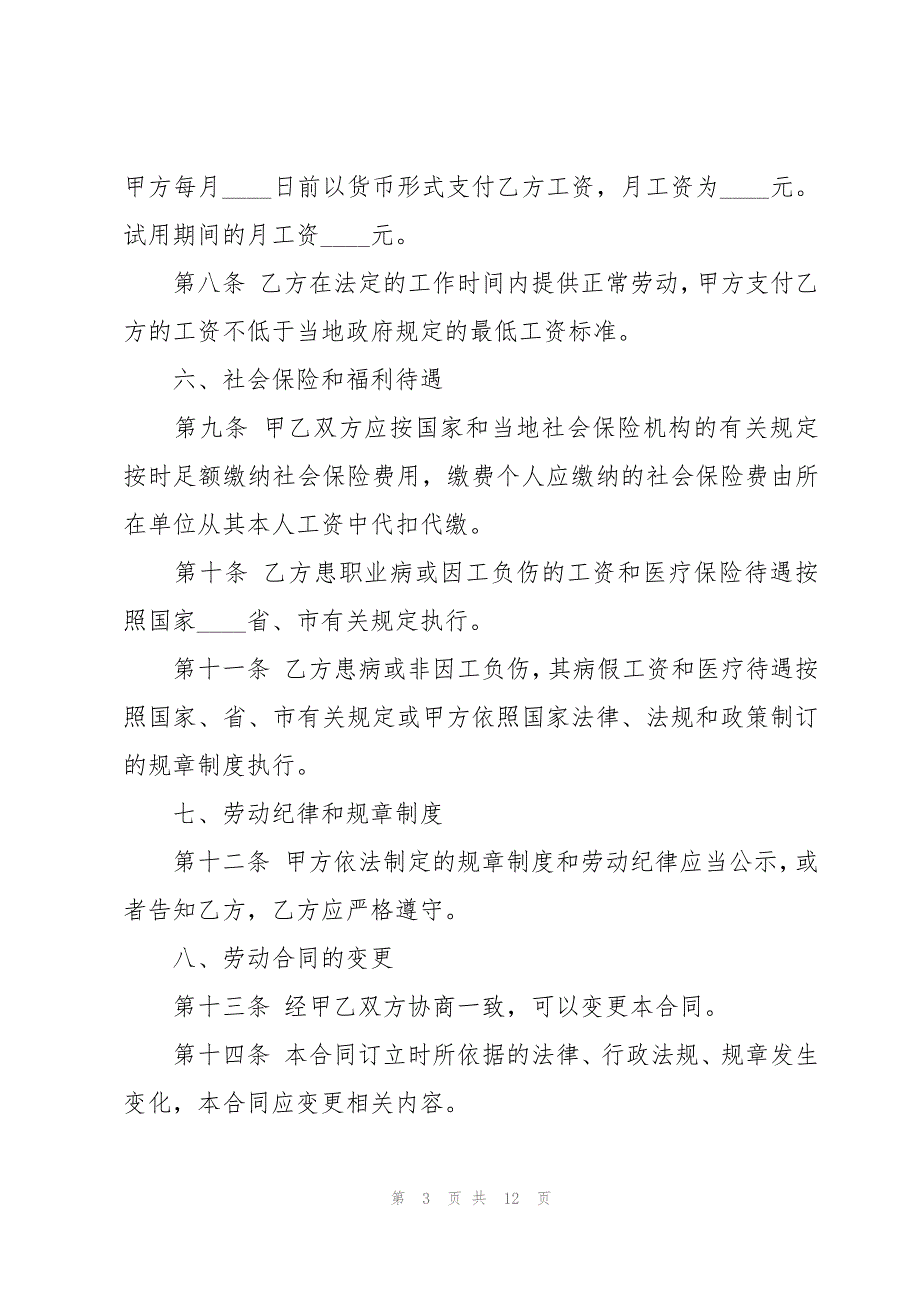 甲方每月____日前以货币形式支付乙方工资，月工资为____元。
试用期间的月工资____元。
第八条 乙方在法定的工作时间内提供正常劳动，甲方支付乙
方的工资不低于当地政府规定的最低工资标准。
六、社会保险和福利待遇
第九条 甲乙双方应按国家和当地社会保险机构的有关规定
按时足额缴纳社会保险费用，缴费个人应缴纳的社会保险费由所
在单位从其本人工资中代扣代缴。
第十条 乙方患职业病或因工负伤的工资和医疗保险待遇按
照国家____省、市有关规定执行。
第十一条 乙方患病或非因工负伤，其病假工资和医疗待遇按
照国家、省、市有关规定或甲方依照国家法律、法规和政策制订
的规章制度执行。
七、劳动纪律和规章制度
第十二条 甲方依法制定的规章制度和劳动纪律应当公示，或
者告知乙方，乙方应严格遵守。
八、劳动合同的变更
第十三条 经甲乙双方协商一致，可以变更本合同。
第十四条 本合同订立时所依据的法律、行政法规、规章发生
变化，本合同应变更相关内容。
第 3 页 共 12 页